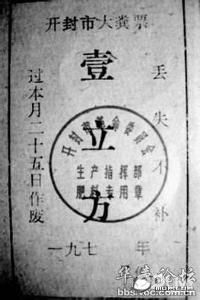 开封市大粪票
壹立方
过本月二十五日作废
丢失不补
开封市革命委员会
生产指挥部
肥料专用章
一九七 年
华夏论坛
bbs.voc.com.cn